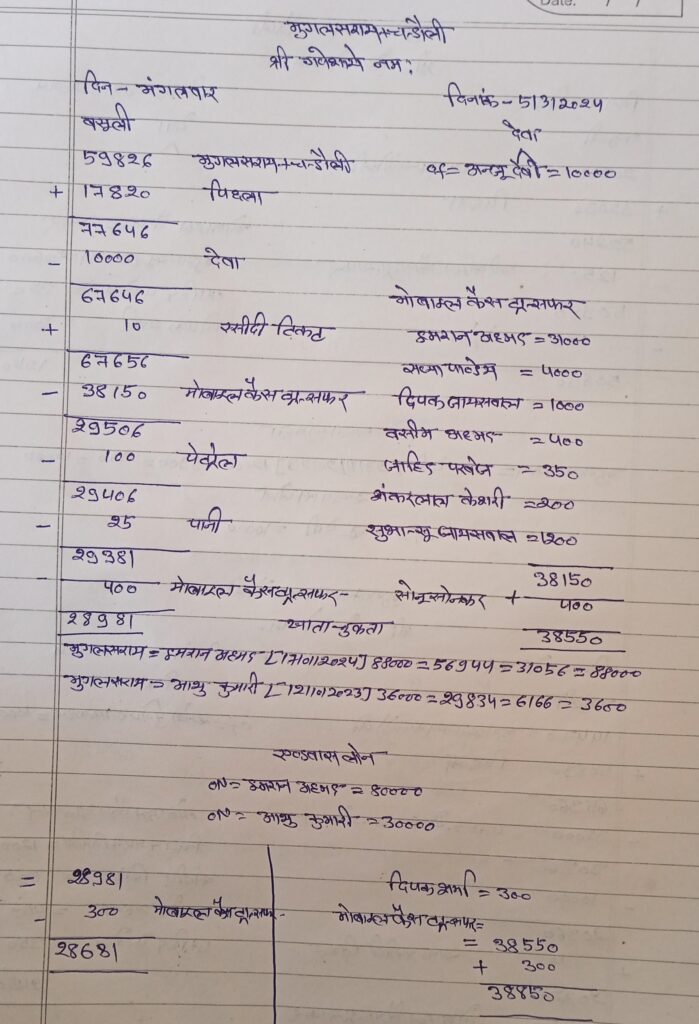 Date. / /
मुगलसराय+चन्डौली
श्री गणेशाये नम:
दिन - मंगलवार दिनांक - 5/3/2024
वसूली देवा
59826 मुगलसराय+चन्डौली अन्जू देवी = 10000
+ 17820 पिछला
77646
- 10000 देवा
67646 मोबाइल कैस ट्रान्सफर
+ 10 रसीदी टिकट इमरान अहमद = 31000
67656 पाण्डेय = 4000
- 38150 मोबाइल कैस ट्रान्सफर दिपक जायसवाल = 1000
29506 वसीम अहमद = 400
- 100 पेट्रोल जाहिद परवेज = 350
29406 शंकरलाल केशरी = 200
- 25 पानी शुभान्सू जायसवाल = 1200
29381 38150
- 400 मोबाइल कैस ट्रान्सफर - सोनू सोनकर + 400
28981 खाता-चुकता 38550
मुगलसराय = इमरान अहमद [17/01/2024] 88000 = 56944 = 31056 = 88000
मुगलसराय = आशु कुमारी [12/10/2023] 36000 = 29834 = 6166 = 3600
एण्डवास लोन
ON = इमरान अहमद = 80000
ON = आशु कुमारी = 30000
= 28981 दिपक शर्मा = 300
- 300 मोबाइल कैस ट्रान्सफर - मोबाइल कैश ट्रान्सफर =
28681 = 38550
+ 300
38850